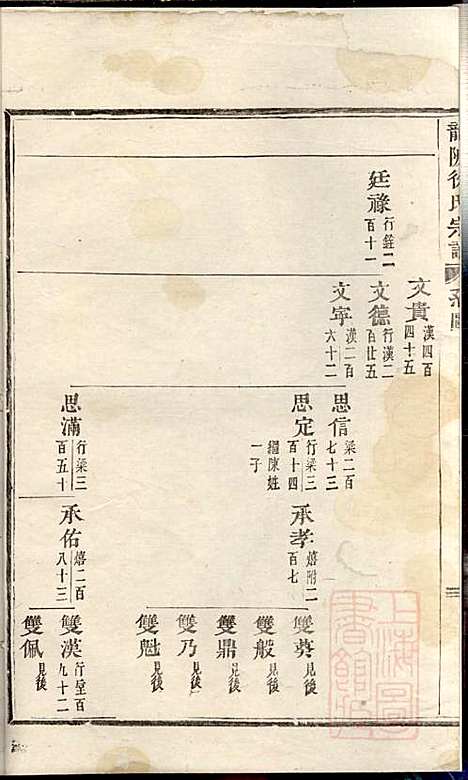 徐氏宗譜
廷祿 行銓二百十一
文貴 漢四百四十五
文德 行漢二百廿五
文寧 漢二百六十二
思信 梁二百七十三
思定 行梁三百十四 繼陳姓一子
思滿 行梁三百五十
承孝 嬉附二百七
承佑 嬉二百八十三
雙 見後
雙般 見後
雙鼎 見後
雙乃 見後
雙魁 見後
雙漢 行堂百九十二
雙佩 見後
上海圖書館藏